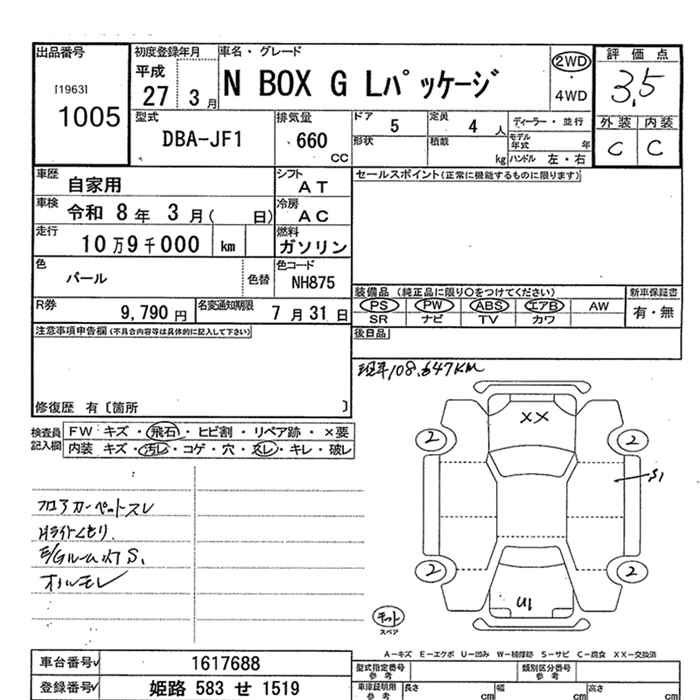 出品番号 初度登録年月 車名・グレード 評価点
[1963] 平成 N BOX G Lパッケージ 2WD 3.5
1005 27 3月 4WD
外装 内装
型式 排気量 ドア 5 定員 4人 ディーラー・並行 C C
DBA-JF1 660 CC 形状 積載 kg モデル年式 年
ハンドル 左・右
車歴 自家用 シフト AT セールスポイント(正常に機能するものに限ります)
車検 令和 8年 3月( 日) 冷房 AC
走行 10万9千000 km 燃料 ガソリン
色 パール 色替 色コード NH875
装備品 (純正品に限り〇をつけてください) 新車保証書
R券 9,790円 名変通知期限 7月31日 PS PW ABS エアB AW 有・無
SR ナビ TV カワ
注意事項申告欄(不具合内容等は具体的に記入して下さい) 後日品
現車108,647KM
修復歴 有〔箇所 〕
検査員記入欄 FW キズ・飛石・ヒビ割・リペア跡・×要
内装 キズ・汚レ・コゲ・穴・スレ・キレ・破レ
XX
2 2
S1
フロアカーペットスレ
Hライトくもり
E/Gルーム サS.
オイルモレ
2 2
U1
キット
スペア
A-キズ E-エクボ U-凹み W-補修跡 S-サビ C-腐食 XX-交換済
車台番号 1617688 型式指定番号 参考 類別区分番号 参考
登録番号 姫路 583 せ 1519 車庫証明用 参考 長さ cm 幅 cm 高さ cm